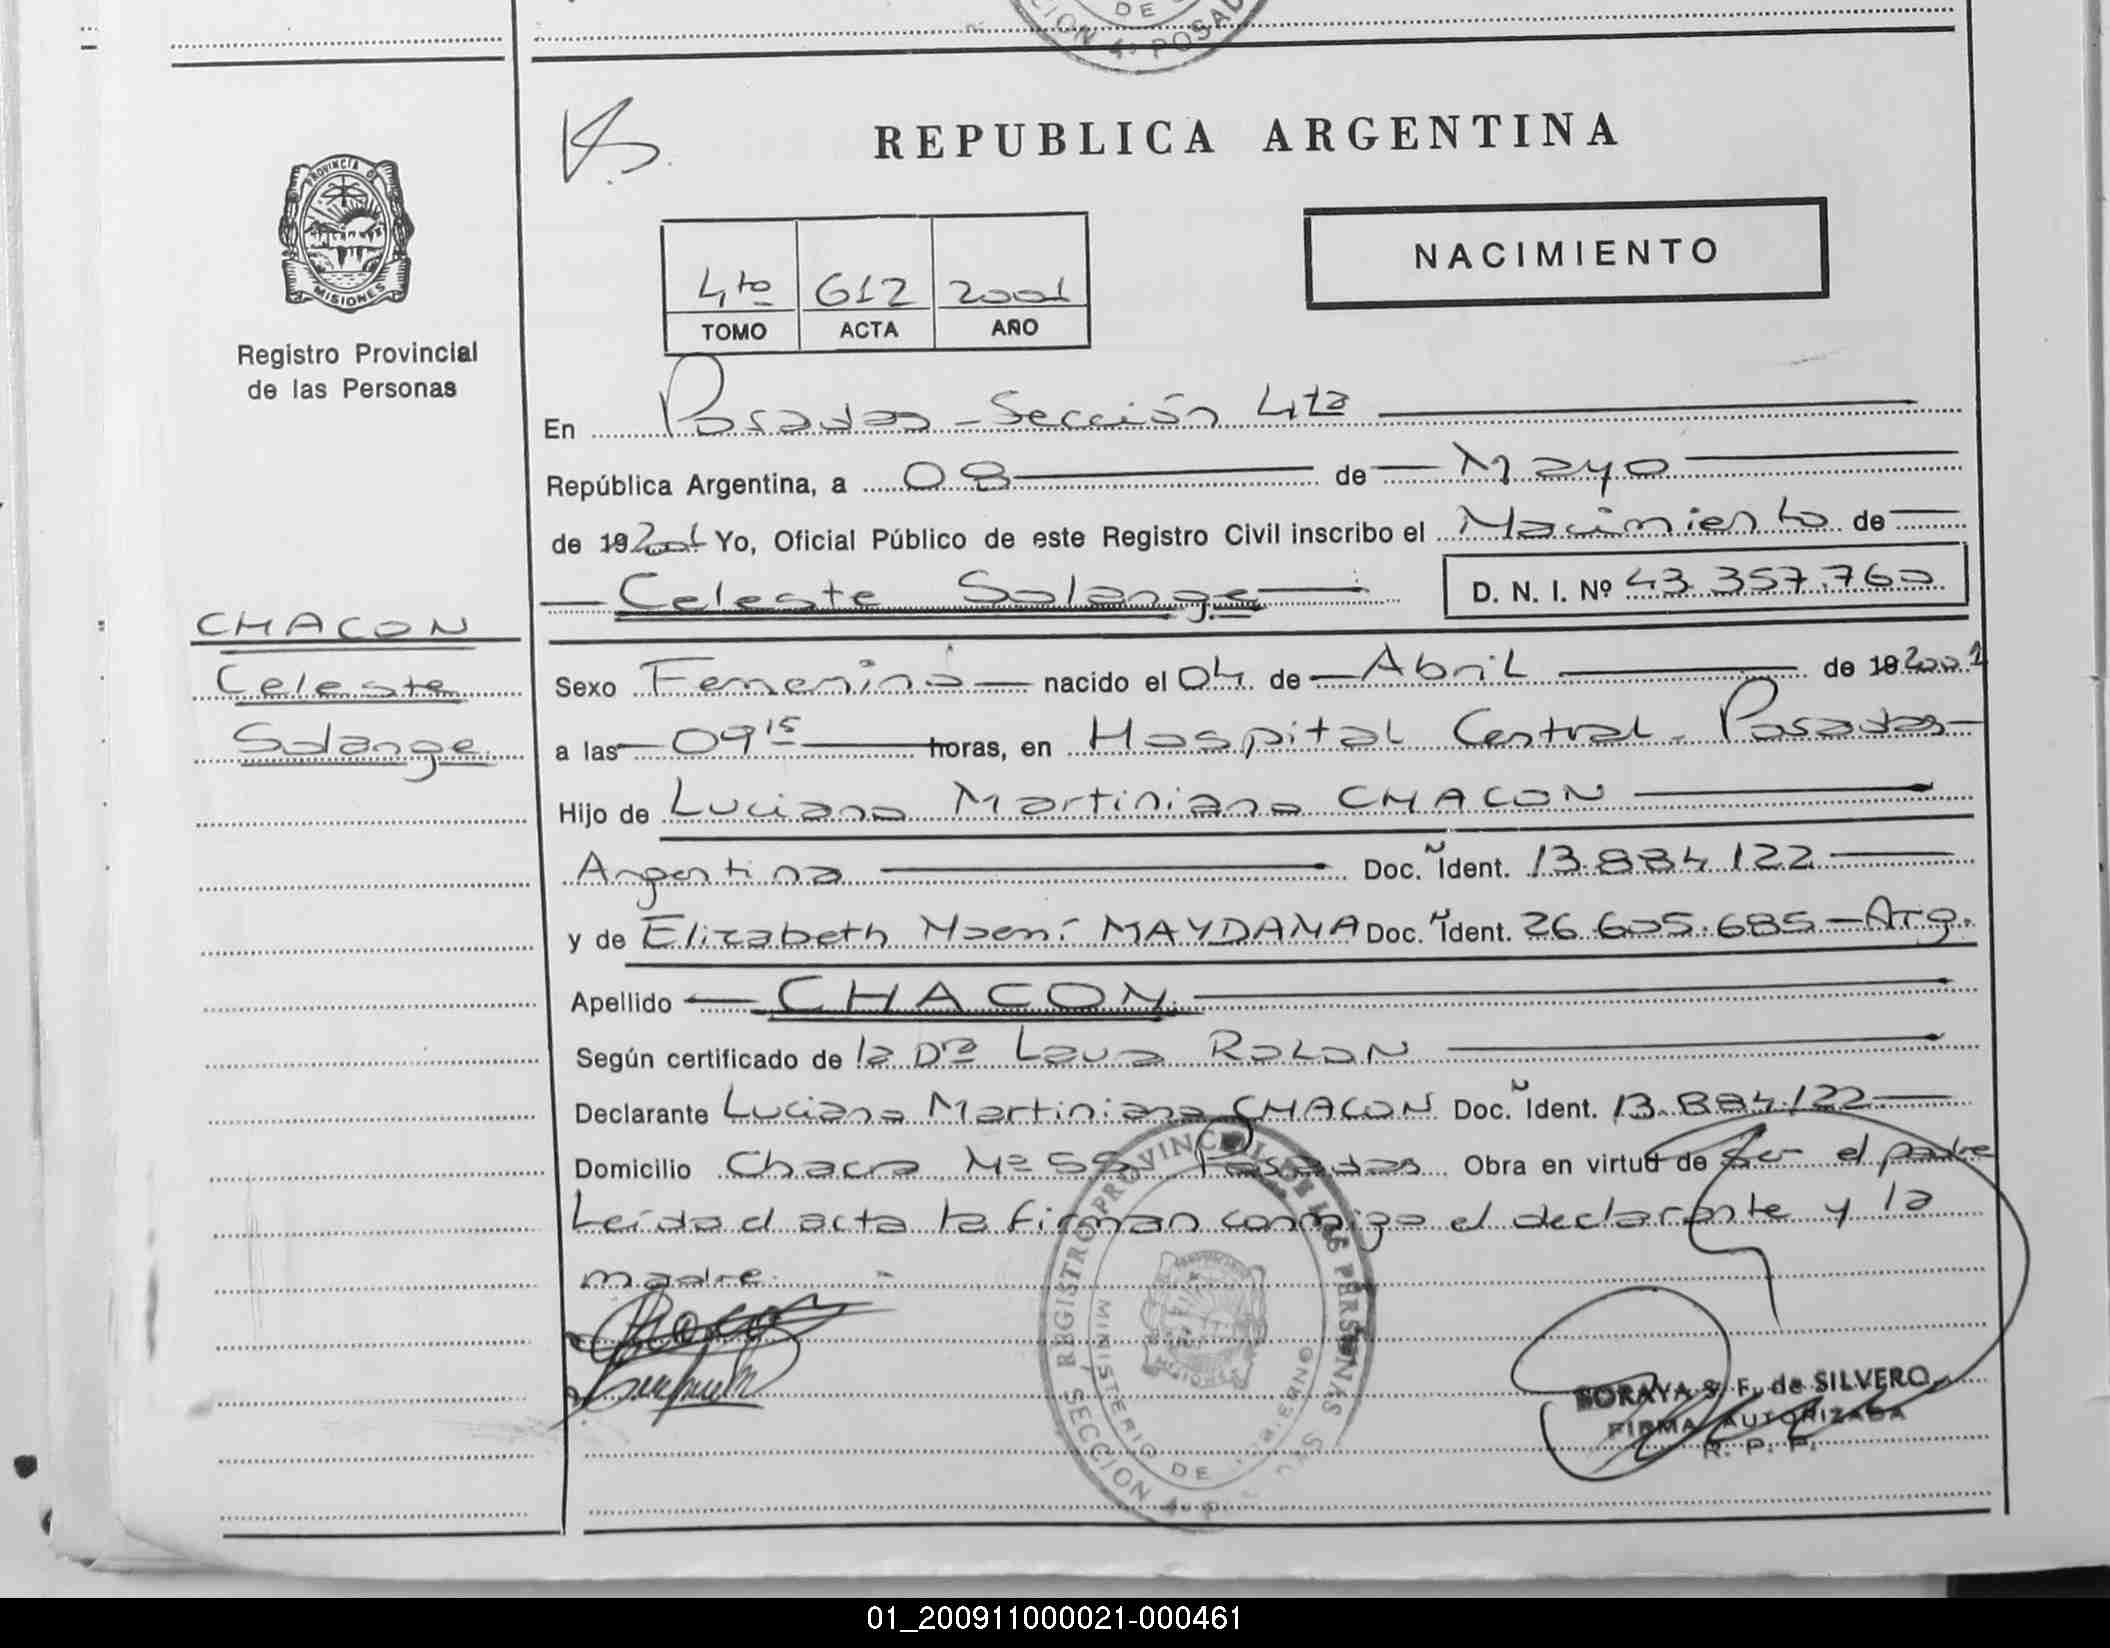 DE
CION 4ª POSAD
REPUBLICA ARGENTINA
PROVINCIA DE
MISIONES
Registro Provincial
de las Personas
NACIMIENTO
4to 612 2001
TOMO ACTA AÑO
En Posadas - Sección 4ta
República Argentina, a 08 de Mayo
de 192001 Yo, Oficial Público de este Registro Civil inscribo el Nacimiento de
Celeste Solange D. N. I. Nº 43.357.760
CHACON
Celeste
Solange
Sexo Femenino nacido el 04 de Abril de 192001
a las 09 15 horas, en Hospital Central - Posadas
Hijo de Luciano Martiniano CHACON
Argentina Doc. Ident. 13.884.122
y de Elizabeth Noemí MAYDANA Doc. Ident. 26.605.685 - Arg.
Apellido CHACON
Según certificado de la Dra Laura ROLON
Declarante Luciano Martiniano CHACON Doc. Ident. 13.884.122
Domicilio Chacra Nº 55 Posadas Obra en virtud de Ser el padre
Leída el acta la firman conmigo el declarante y la
madre.
REGISTRO PROVINCIAL DE LAS PERSONAS
MINISTERIO DE GOBIERNO
SECCION 4ª
MISIONES
SORAYA S. F. de SILVERO
FIRMA AUTORIZADA
R. P. P.
01_200911000021-000461